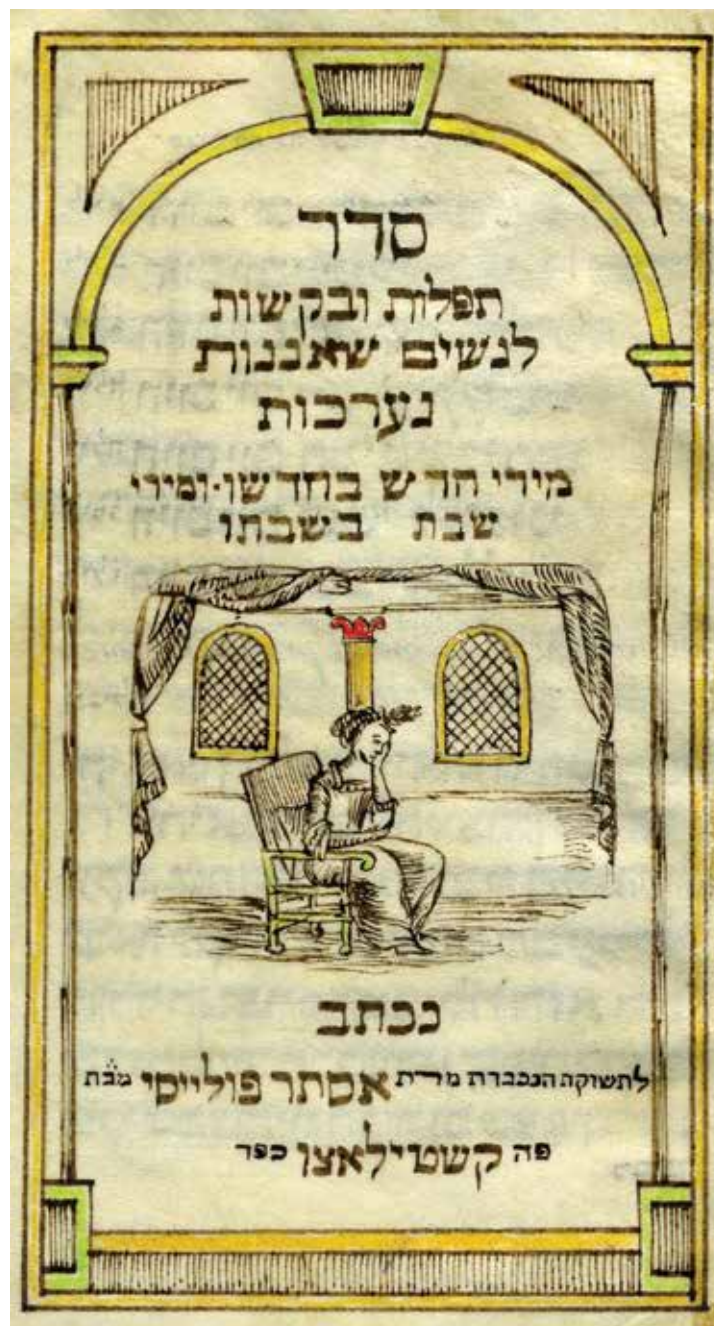 סדר
תפלות ובקשות
לנשים שאננות
נערכות
מידי חדש בחדשו·ומידי
שבת בשבתו
נכתב
לתשוקת הנכבדת מר״ת אסתר פולייסי מב״ת
פה קשטילאצו כפר